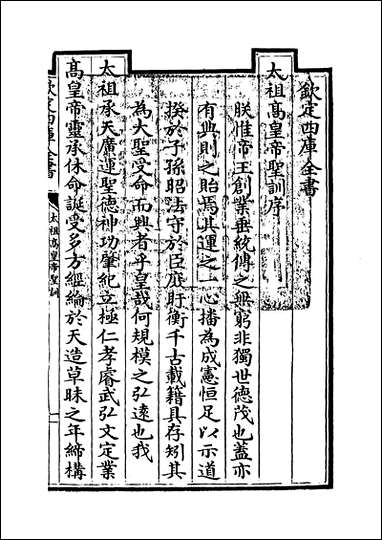 欽定四庫全書
太祖高皇帝聖訓序
朕惟帝王創業垂統傳之無窮非獨世德茂也葢亦
有典則之貽焉其運之一心播為成憲恒足以示道
揆於子孫昭法守於臣庶盱衡千古載籍具存矧其
為大聖受命而興者乎皇哉何規模之弘遠也我
太祖承天廣運聖德神功肇紀立極仁孝睿武弘文定業
高皇帝靈承休命誕受多方經綸於天造草昧之年締構
欽定四庫全書
太祖高皇帝聖訓
一